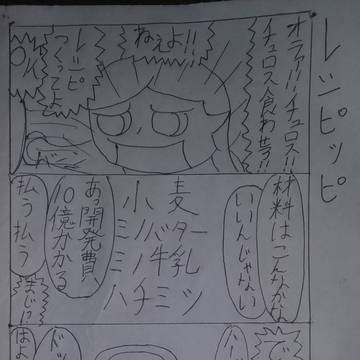 レシピッピ
オラァ!!!チュロス!!
チュロス食わせろ!!
ねぇよ!!
レシピ
つくってよ
OK
材料はこんなかな
いいんじゃない
麦ター乳ツ
バ牛ミ
小ノノチ
ミミハ
あっ開発費、
10億かかる
払う払う
まじ!?